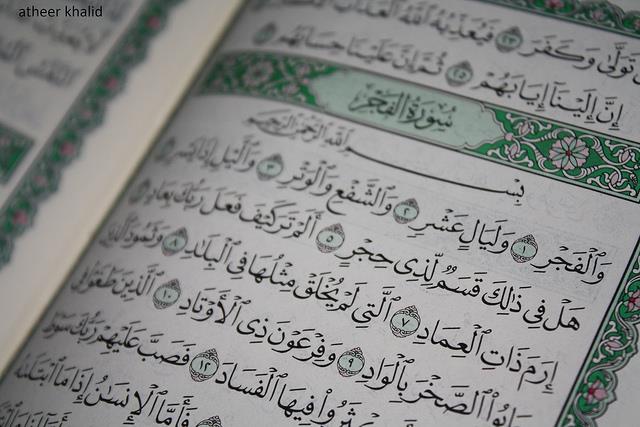 atheer khalid
تَوَلَّىٰ وَكَفَرَ ٢٣ فَيُعَذِّبُهُ ٱللَّهُ ٱلْعَذَابَ
إِنَّ إِلَيْنَآ إِيَابَهُمْ ٢٥ ثُمَّ إِنَّ عَلَيْنَا حِسَابَهُم
سُورَةُ الْفَجْرِ
بِسْمِ ٱللَّهِ ٱلرَّحْمَٰنِ ٱلرَّحِيمِ
وَٱلْفَجْرِ ١ وَلَيَالٍ عَشْرٍ ٢ وَٱلشَّفْعِ وَٱلْوَتْرِ ٣ وَٱلَّيْلِ إِذَا يَسْرِ
هَلْ فِى ذَٰلِكَ قَسَمٌ لِّذِى حِجْرٍ ٥ أَلَمْ تَرَ كَيْفَ فَعَلَ رَبُّكَ بِعَادٍ
إِرَمَ ذَاتِ ٱلْعِمَادِ ٧ ٱلَّتِى لَمْ يُخْلَقْ مِثْلُهَا فِى ٱلْبِلَٰدِ ٨ وَثَمُودَ ٱلَّذِينَ
جَابُوا۟ ٱلصَّخْرَ بِٱلْوَادِ ٩ وَفِرْعَوْنَ ذِى ٱلْأَوْتَادِ ١٠ ٱلَّذِينَ طَغَوْا۟ فِى
فِيهَا ٱلْفَسَادَ ١٢ فَصَبَّ عَلَيْهِمْ رَبُّكَ سَوْطَ
فَأَمَّا ٱلْإِنسَٰنُ إِذَا مَا ٱبْتَلَىٰهُ